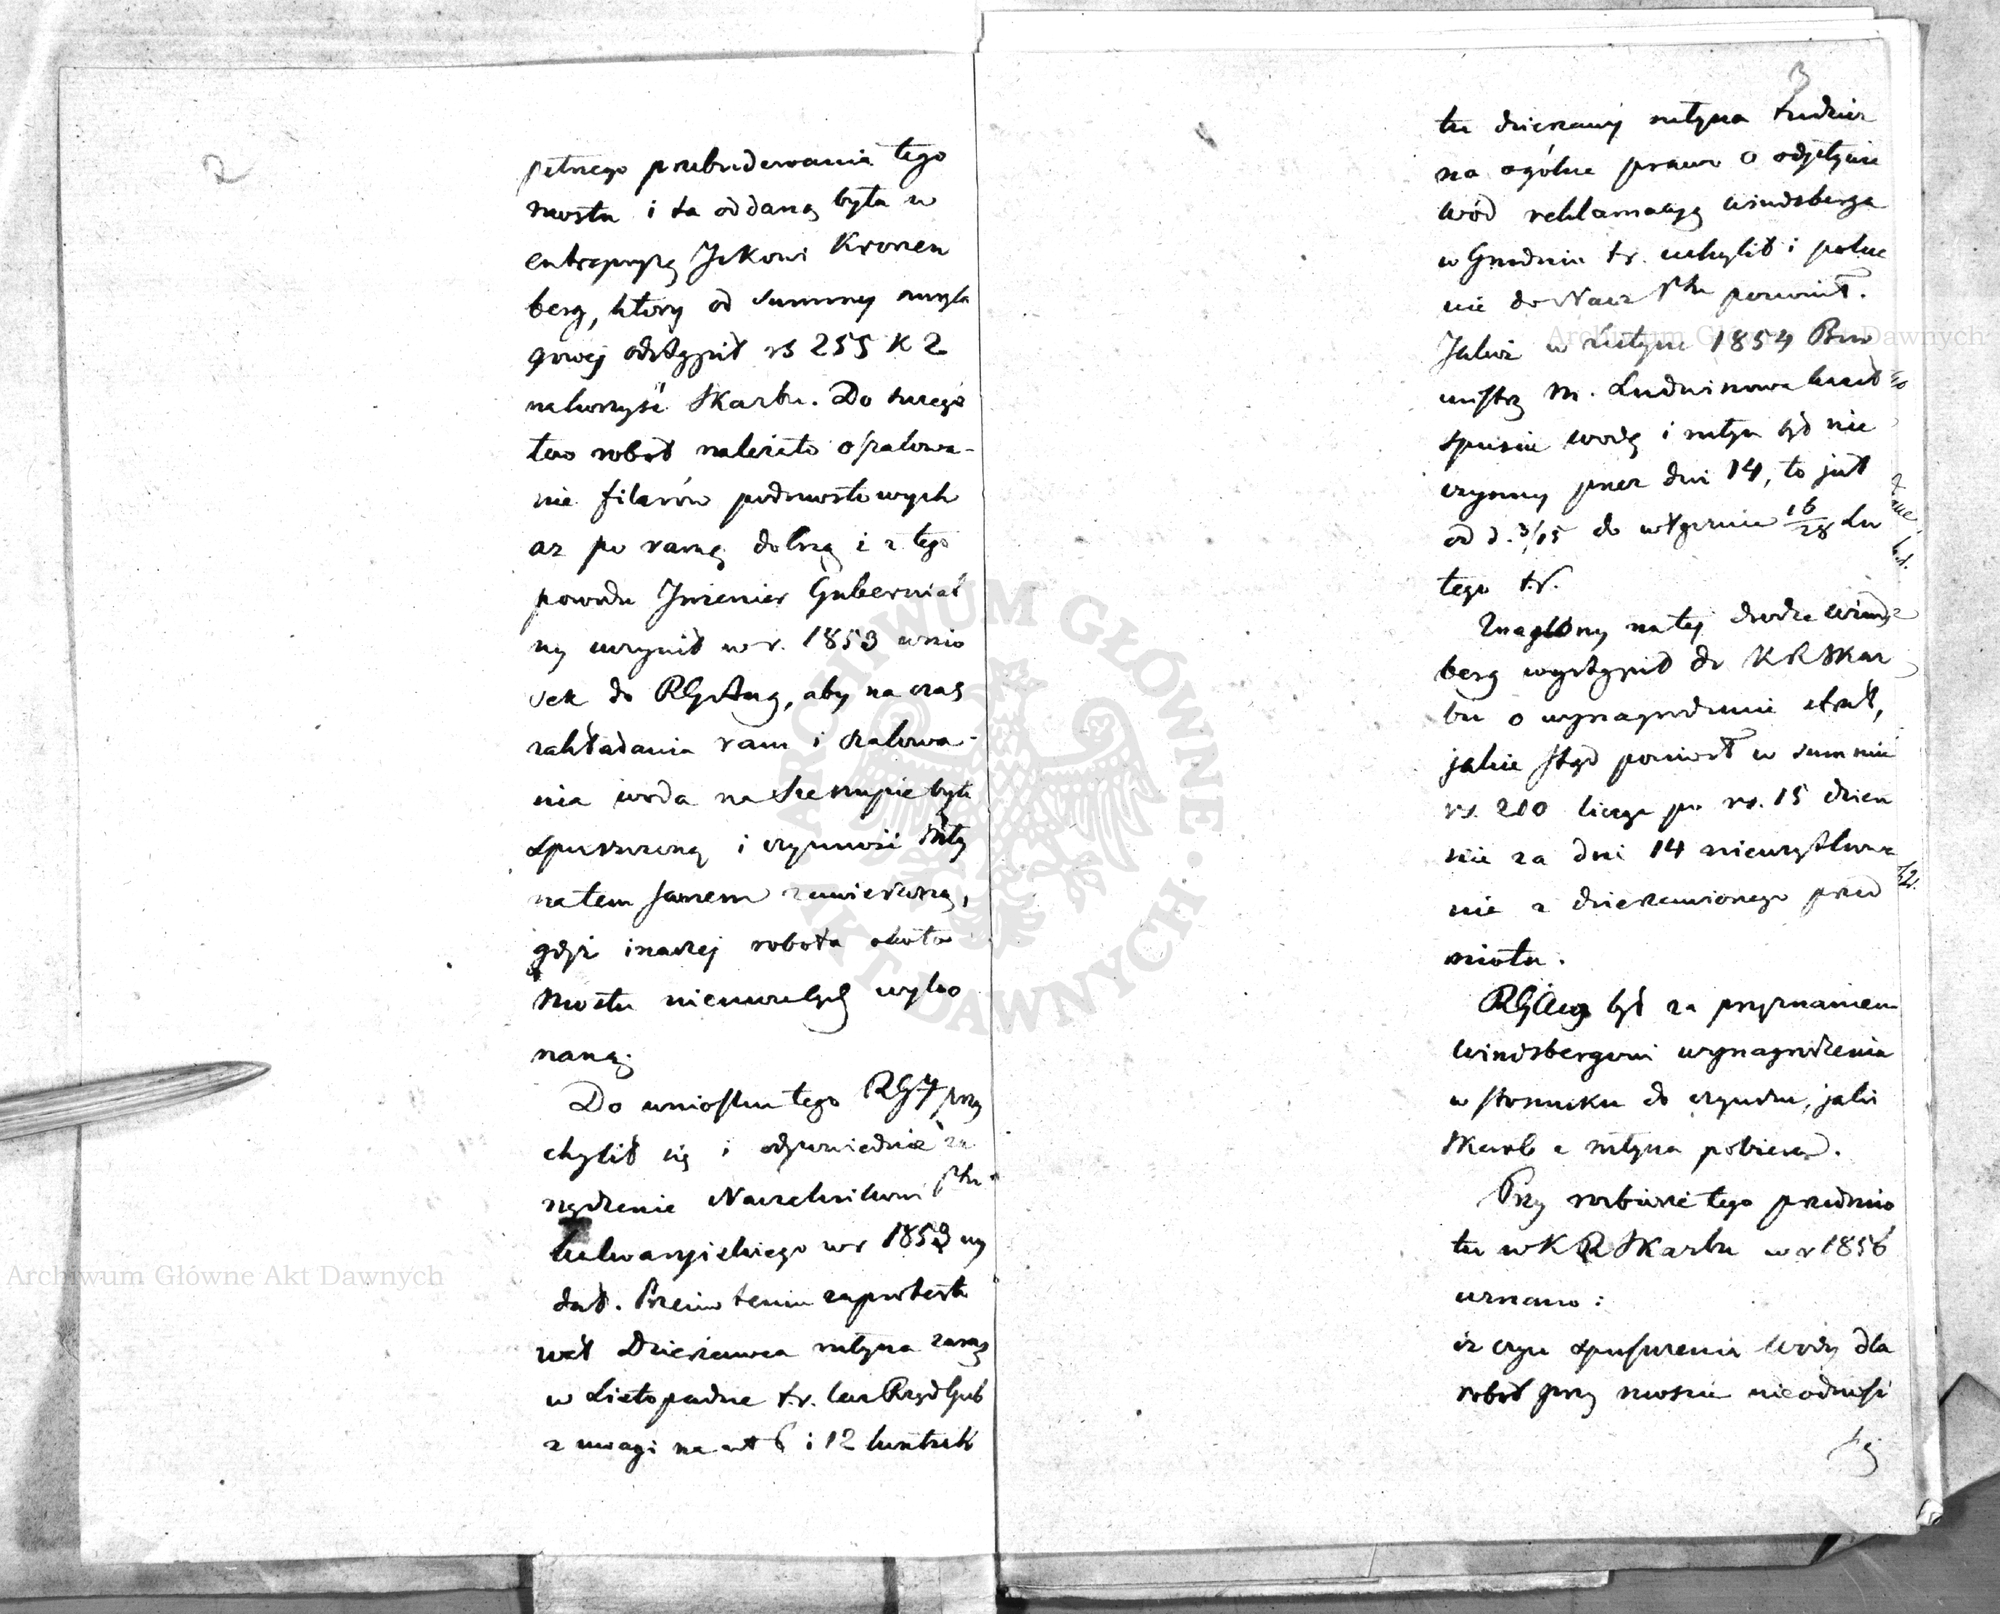 2
pełnego przebudowania tego
mostu i ta oddaną była w
entrepryzę Ickowi Kronen
berg, który od summy
gowej odstąpił rs 255 k 2
na korzyść Skarbu. Do szeregu
tew robót należało opalowa-
nie filarów podmostowych
aż po ramę dolną i z tego
powodu Inżenier Gubernial
ny uczynił w r. 1853 wnio
sek do RGAug, aby na czas
zakładania ram i palowa-
nia woda na Szeszupie była
spuszczoną i czynność młyna
na tem samem zawieszoną,
gdyż inaczej robota około
Mostu niemogłaby być wyko
naną.
Do wniosku tego RG przy
chylił się i odpowiednie za
rządzenie Naczelnikowi Ptu
kalwaryjskiego w r 1853 wy
dał. Przeciw temu zaprotesto
wał Dzierżawca młyna zaraz
w Listopadzie t.r. lecz Rząd Gub
z uwagi na art 6 i 12 kontrak
3
tu dzierżawy młyna tudzież
na ogólne prawo o odjęciu
wód reklamacyą Windsberga
w Grudniu t.r. uchylił i polece
nie do Nacz Ptu ponowił.
Jakoż w lutym 1854 Bur
mistrz M. Ludwinowa kazał
spuścić wodę i młyn był nie
czynny przez dni 14, to jest
od d. 3/15 do włącznie 16/28 Lu
tego t.r.
Znaglony na tej drodze Winds
berg wystąpił do KRSkar
bu o wynagrodzenie strat,
jakie stąd poniósł w summie
rs. 210 licząc po rs. 15 dzien
nie za dni 14 nieużytkowa
nie z dzierżawionego przed
miotu.
RGAug był za przyznaniem
Windsbergowi wynagrodzenia
w stosunku do czynszu, jaki
Skarb z młyna pobierał.
Przy rozbiorze tego przedmio
tu w KRSkarbu w r 1856
uznano:
iż czyn spuszczenia wody dla
robót przy moście nieodnosi
się
Archiwum Główne Akt Dawnych
Archiwum Główne Akt Dawnych
ARCHIWUM GŁÓWNE AKT DAWNYCH